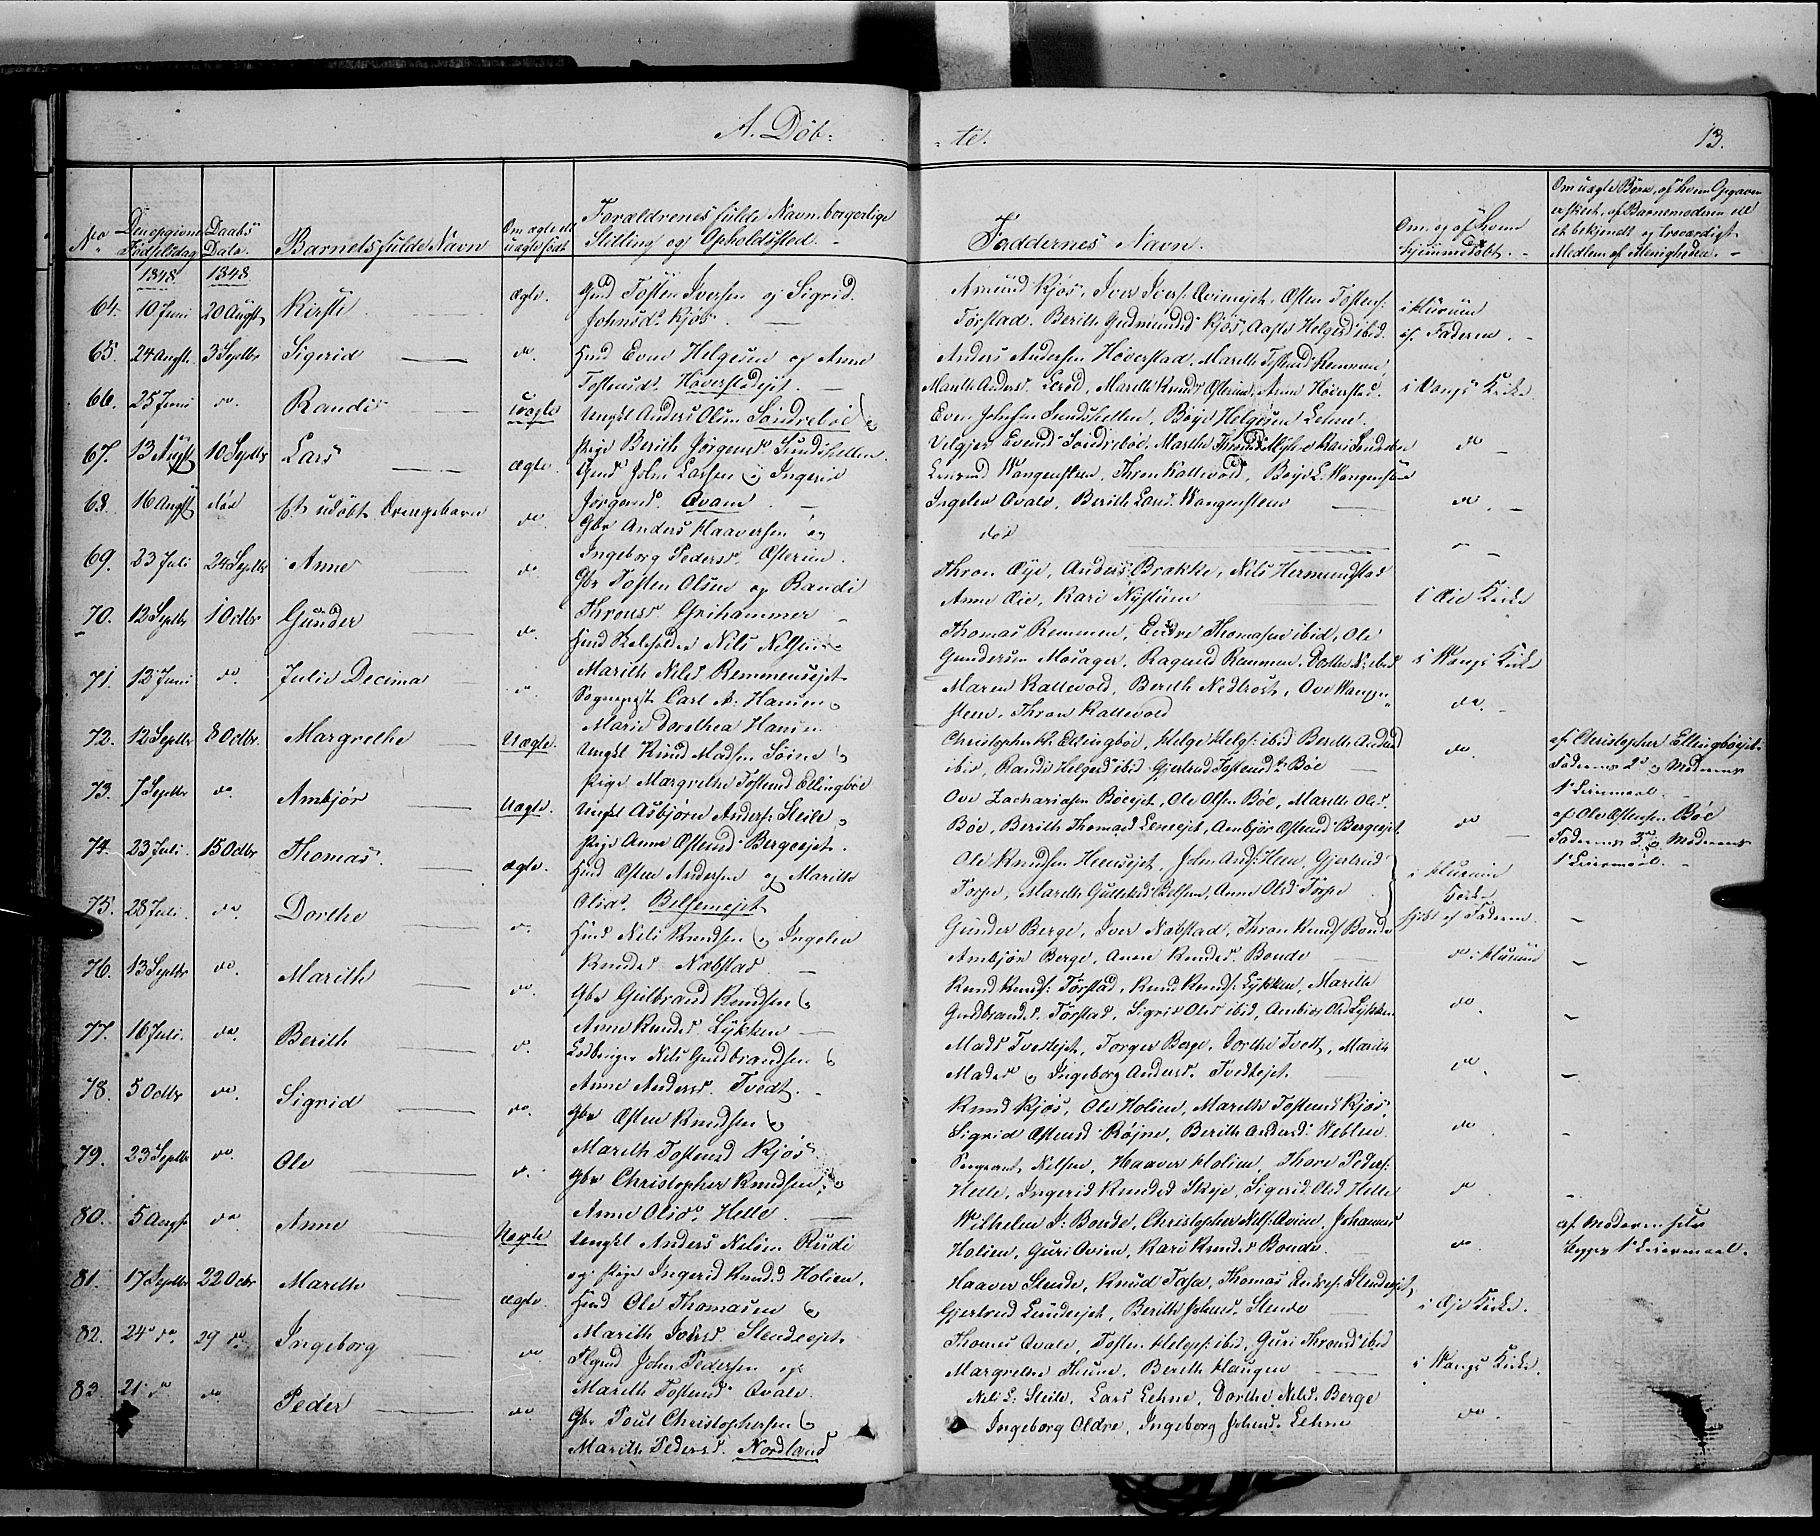 A. Döb-
-te.
13.
No
Den opgivne Fødselsdag
Daabs Data.
Barnets fulde Navn
Om ægte ell. uægte født
Forældrenes fulde Navn, borgerlige
Stilling og Opholdssted.
Faddernes Navn.
Om og af hvem
hjemmedøbt.
Om uægte Børn, af hvem Opgaven
er skeet, af Barnemoderen ell
et bekjendt og troværdigt
Medlem af Menigheden.
1848. 1848
64. 10 Juni 20 Augst Kirsti ægte. Gmd Tosten Iversen og Sigrid
Johnsd. Kjøs.
Amund Kjøs, Iver Ivers. Qviemejet, Østen Tostens.
Tørstad. Berith Gudmundsd Kjøs, Aaste Helgesd ibid.
i Hurum
af Faderen.
65. 24 Augst. 3 Septbr Sigerid do. Hmd Even Helgesen og Anne
Tostensd. Høverstadejet.
Anders Andersen Høverstad, Marith Tostensd Remmen,
Marith Andersd. Leroe, Marith Knudsd Østerün, Anne Høverstad.
i Vangs Kirke
66. 25 Juni do. Randi Uægte Ungkl Anders Olsen Søndrebøe &
Pige Berith Jørgensd. Sundshellen.
Even Johnsen Sundshellen, Bøye Helgesen Lehne.
do
67. 13 Augst 10 Septbr Lars ægte. Gmd John Larsen & Ingerid
Jørgensd. Qvam.
Ingelev Qvale, Berith Larsd. Wangensteen
do.
68. 16 Augst død Et udøbt Drengebarn do Gbr Anders Haaversen og
Ingeborg Pedersd. Østerün.
død
69. 23 Juli 24 Septbr Anne do Gbr Tosten Olsen og Randi
Thronsd Grihammer
Thron Øye, Anders Brække, Nils Hermundstad
Anne Øie, Kari Nystuen
i Øie Kirke
70. 12 Septbr 1 Octbr Gunder do. Hmd Nils Nilsen &
Marith Nilsd Remmensejet.
Thomas Remmen, Endre Thomasen ibid, Ole
Gundersen Mosager, Ragnild Remmen, Dorthe N. ibid
i Vangs Kirke
71. 13 Juni do. Julie Decima Sogneprest Carl A. Hansen &
Marie Dorothea Hansen
Maren Kattevold, Berith Nedtrost, Ove Wangen-
steen, Thron Kattevold
do.
72. 12 Septbr 8 Octbr. Margrethe Uægte. Ungkl Knud Madsen Søine &
Pige Margrethe Tostensd Ellingbøe
Christopher K. Ellingbøe, Helge Helgs. ibid Berith Andersd
ibid, Randi Helgesd ibid Gjertrud Tostensd Bøe
do
af Christopher Ellingbøejet.
Faderens 2d & Moderens
1ste Leiermaal.
73. 7 Septbr do. Ambjør Uægte. Ungkl Asbjørn Anders. Steile &
Pige Anne Østensd Bergeejet.
Ove Zachariasen Bøeejet, Ole Olsen Bøe, Marith Olsd.
Bøe, Berith Thomasd Leneejet, Ambjør Østensd Bergeejet
do
af Ole Østensen Bøe
Faderens 3die & Moderens
1ste Leiermaal.
74. 23 Juli. 15 Octbr Thomas. ægte. Hmd Østen Andersen og Marith
Olsd. Belsemejet
Ole Knudsen Heensejet, John Ands. Heen, Gjertrud
Torpe, Marith Gulleksd Belsem, Anne Olsd Torpe
i Hurum
Kirke
hjdt af Faderen.
75. 28 Juli. do. Dorthe do. Hmd Nils Knudsen & Ingelev
Knudsd Nabstad
Gunder Berge, Iver Nabstad, Thron Knuds. Bonde
Ambjør Berge, Anne Knudsd. Bonde
do i Hurum
76. 13 Septbr do. Marith do. Gbr Gulbrand Knudsen &
Anne Knudsd. Lykken
Knud Knuds. Tørstad, Knud Knuds. Lykken, Marith
Gudbrandsd. Tørstad, Sigrid Olsd ibid, Ambjør Olsd Lykken
do.
77. 16 Juli. do. Berith d. Nils Gudbrandsen &
Anne Andersd. Tvedt.
Mads Tvedtejet, Torger Berge, Dorthe Tvedt, Marith
Madsd & Ingeborg Andersd. Tvedtejet.
do.
78. 5 Octbr do. Sigrid do. Gbr Østen Knudsen &
Marith Tostensd Kjøs
Knud Kjøs, Ole Holien, Marith Tostensd Kjøs,
Sigrid Østensd Røjne, Berith Andersd. Veblen.
do.
79. 23 Septbr do. Ole d. Gbr Christopher Knudsen &
Anne Olsd. Helle.
Sergeant Nilsen, Haaver Holien, Thore Peders.
Helle, Ingerid Knudsd Skeje, Sigerid Olsd Helle
do.
80. 5 Augst do Anne Uægte Ungkl Anders Nilsen Rudi
og Pige Ingerid Knudsd Holien.
Wilhelm I. Bonde, Christopher Nils. Qvien, Johannes
Holien, Guri Qvien, Kari Knudsd Bonde.
do.
af Moderen selv
begges 1ste Leiermaal.
81. 17 Septbr 22 Octbr Marithe ægte. Hmd Ole Thomasen &
Marith Johnsd. Slendeejet.
Haaver Slende, Knud Fasa, Thomas Endres. Slendeejet,
Gjertrud Slendeejet, Berith Johnsd. Slende
i Øje Kirke.
82. 24 do. 29 do. Ingeborg do John Pedersen og
Marith Tostensd Qvale.
Thomas Qvale, Tosten Helges. ibid, Guri Thronsd ibid
Margrethe Thune, Berith Haugen
i Vangs Kirke.
83. 21 do do Peder do Gbr Poul Christophersen &
Marith Pedersd. Nordland
Nils L. Steile, Lars Lehne, Dorthe Nilsd. Berge
Ingeborg Oldre, Ingeborg Johnsd. Lehne
do.